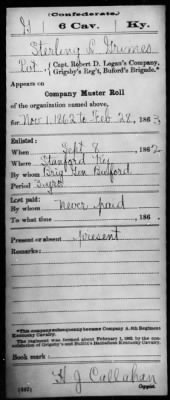 (Confederate.)
G 6 Cav. Ky.
Sterling L Grimes
Pvt, Capt. Robert D. Logan's Company, Grigsby's Reg't, Buford's Brigade.*
Appears on
Company Muster Roll
of the organization named above,
for Nov 1, 1862 to Feb 28, 1863
Enlisted:
When Sept 8, 1862
Where Stanford Ky
By whom Brig Gen Buford
Period 3 yrs
Last paid:
By whom never paid
To what time , 186 .
Present or absent present
Remarks:
*This company subsequently became Company A, 6th Regiment Kentucky Cavalry.
The regiment was formed about February 1, 1863, by the consolidation of Grigsby's and Butler's Battalions Kentucky Cavalry.
Book mark:
H J Callahan
(642) Copyist.